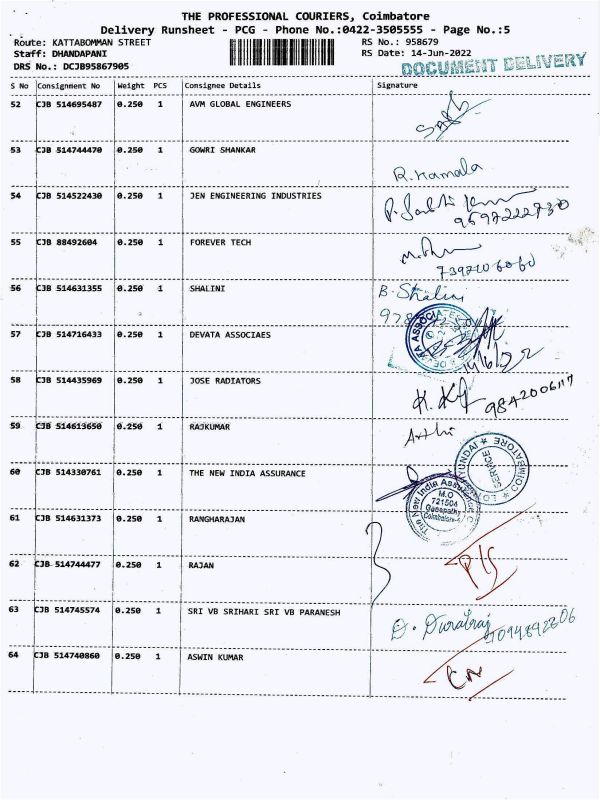 THE PROFESSIONAL COURIERS, Coimbatore
Delivery Runsheet - PCG - Phone No.:0422-3505555 - Page No.:5
Route: KATTABOMMAN STREET RS No.: 958679
Staff: DHANDAPANI RS Date: 14-Jun-2022
DRS No.: DCJB95867905 DOCUMENT DELIVERY
S No Consignment No Weight PCS Consignee Details Signature
52 CJB 514695487 0.250 1 AVM GLOBAL ENGINEERS
53 CJB 514744470 0.250 1 GOWRI SHANKAR
R. Kamala
54 CJB 514522430 0.250 1 JEN ENGINEERING INDUSTRIES
9597222730
55 CJB 88492604 0.250 1 FOREVER TECH
56 CJB 514631355 0.250 1 SHALINI B. Shalini
57 CJB 514716433 0.250 1 DEVATA ASSOCIAES
14/6/22
58 CJB 514435969 0.250 1 JOSE RADIATORS
9842006117
59 CJB 514613650 0.250 1 RAJKUMAR Arthi
HYUNDAI SERVICE COIMBATORE
60 CJB 514330761 0.250 1 THE NEW INDIA ASSURANCE
The New India Assurance
M.O
721504
Ganapathy
Coimbatore-6
61 CJB 514631373 0.250 1 RANGHARAJAN
62 CJB 514744477 0.250 1 RAJAN
63 CJB 514745574 0.250 1 SRI VB SRIHARI SRI VB PARANESH
D. Durairaj
64 CJB 514740860 0.250 1 ASWIN KUMAR